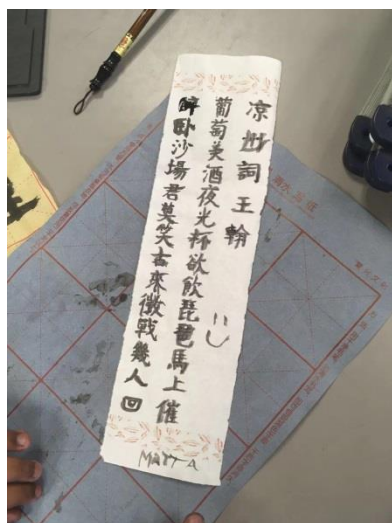 凉州詞王翰
葡萄美酒夜光杯欲飲琵琶馬上催
醉臥沙場君莫笑古來徵戰幾人回
MATT A